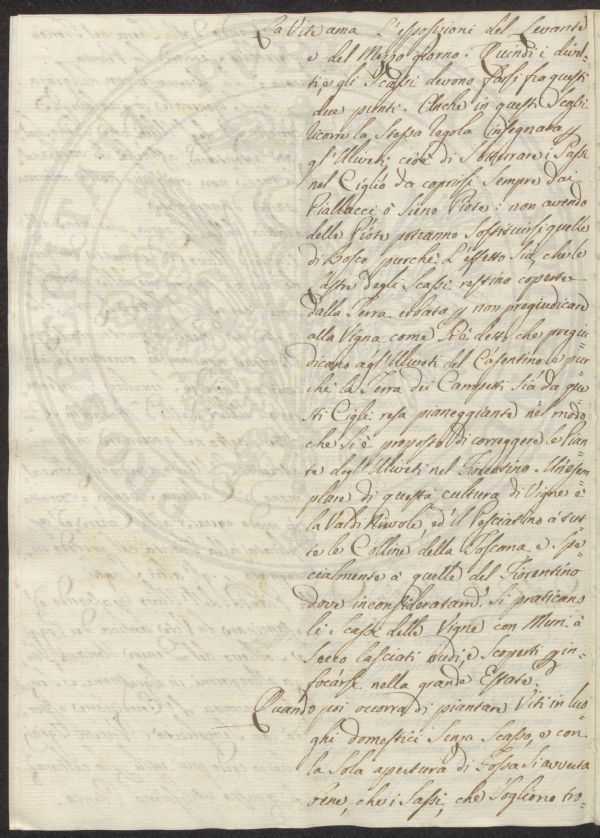 La Vite ama L'esposizioni del Levante
e del Mezzo giorno: Quindi i divel-
ti, e gli Scassi devono farsi fra questi
due punti. Anche in questi Scassi
ricorre la Stessa regola insegnata
gl'Uliveti cioè di Sotterrare i Sassi
nel Ciglio da coprirsi Sempre dai
Piallacci ò Sieno Piote: non avendo
delle Piote potranno Sostituirsi quelle
di bosco purchè L'effetto Sia, che le
Lastre degli Scassi restino coperte
dalla Terra erbata p non pregiudicare
alla Vigna come Si è detto che pregiu-
dicano agl'Uliveti del Casentino e pur-
chè la Terra dei Campetti Sia da que-
sti Cigli resa pianeggiante nel modo
che si è proposto di correggere le Pian-
te degl'Uliveti nel Fiorentino. Un'esem-
plare di questa cultura di Vigne è
la Valdi Nievole, ed il Pesciatino à tut-
te le Colline della Toscana, e Spe-
cialmente à quelle del Fiorentino
dove inconsideratam. Si praticano
li Scassi delle Vigne con Muri à
Secco lasciati nudi, e Scoperti p in-
focarsi nella grande Estate.
Quando poi occorra di piantare Viti in luo-
ghi domestici Senza Scasso, e con
la Sola apertura di Fossa Si avverta
bene, che i Sassi, che Sogliono tro-